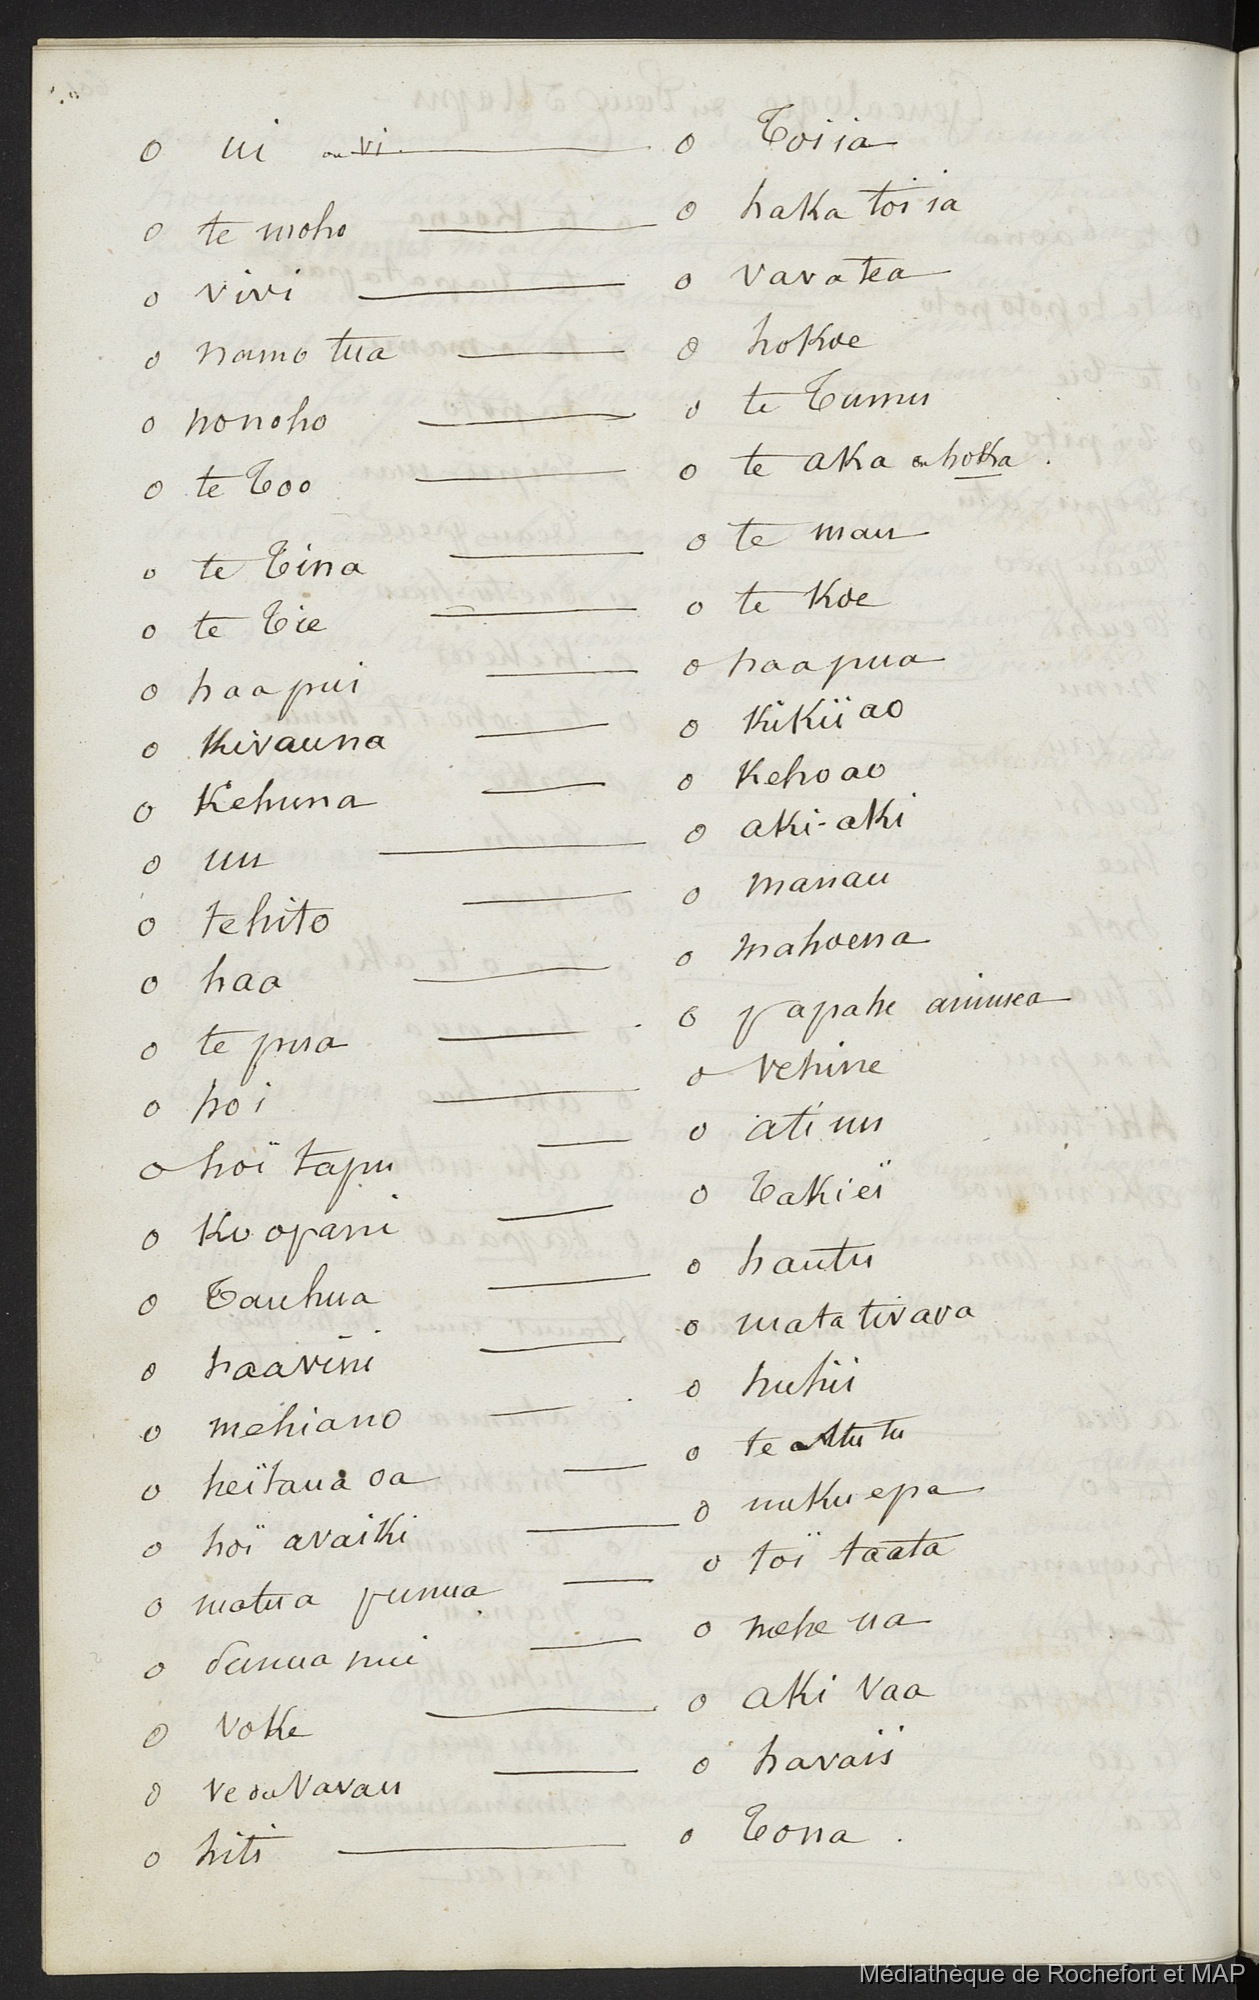 o ui ou vi — o Toiia
o te moho — o haka toi ia
o vivi — o vavatea
o namo tua — o hokoe
o nonoho — o te Tumu
o te Too — o te aka ou hoka .
o te Tina — o te mau
o te Tie — o te koe
o haapui — o haapua
o Kivauna — o Kikii ao
o Kehuna — o Kehoao
o uu — o aki-aki
o tehito — o manau
o haa — o mahoena
o te pua — o papahe
o hoi — o vehine
o hoï tapu — o ati uu
o Ko opani — o Takieï
o Tauhua — o hautu
o haavini — o mata tivava
o mehiano — o huhii
o heïtaua oa — o te
o hoï avaiki — o nuku epa
o matua — o toï taata
o — o mehe ua
o voke — o aki vaa
o ve ou Vavau — o havaii
o hiti — o Tona .
Médiathèque de Rochefort et MAP